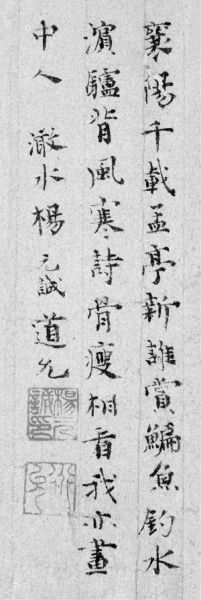 襄陽千載孟亭新誰賞鯿魚釣水
濱驢背風寒詩骨瘦相看我亦畫
中人 澉水楊元誠道允
楊元
誠印